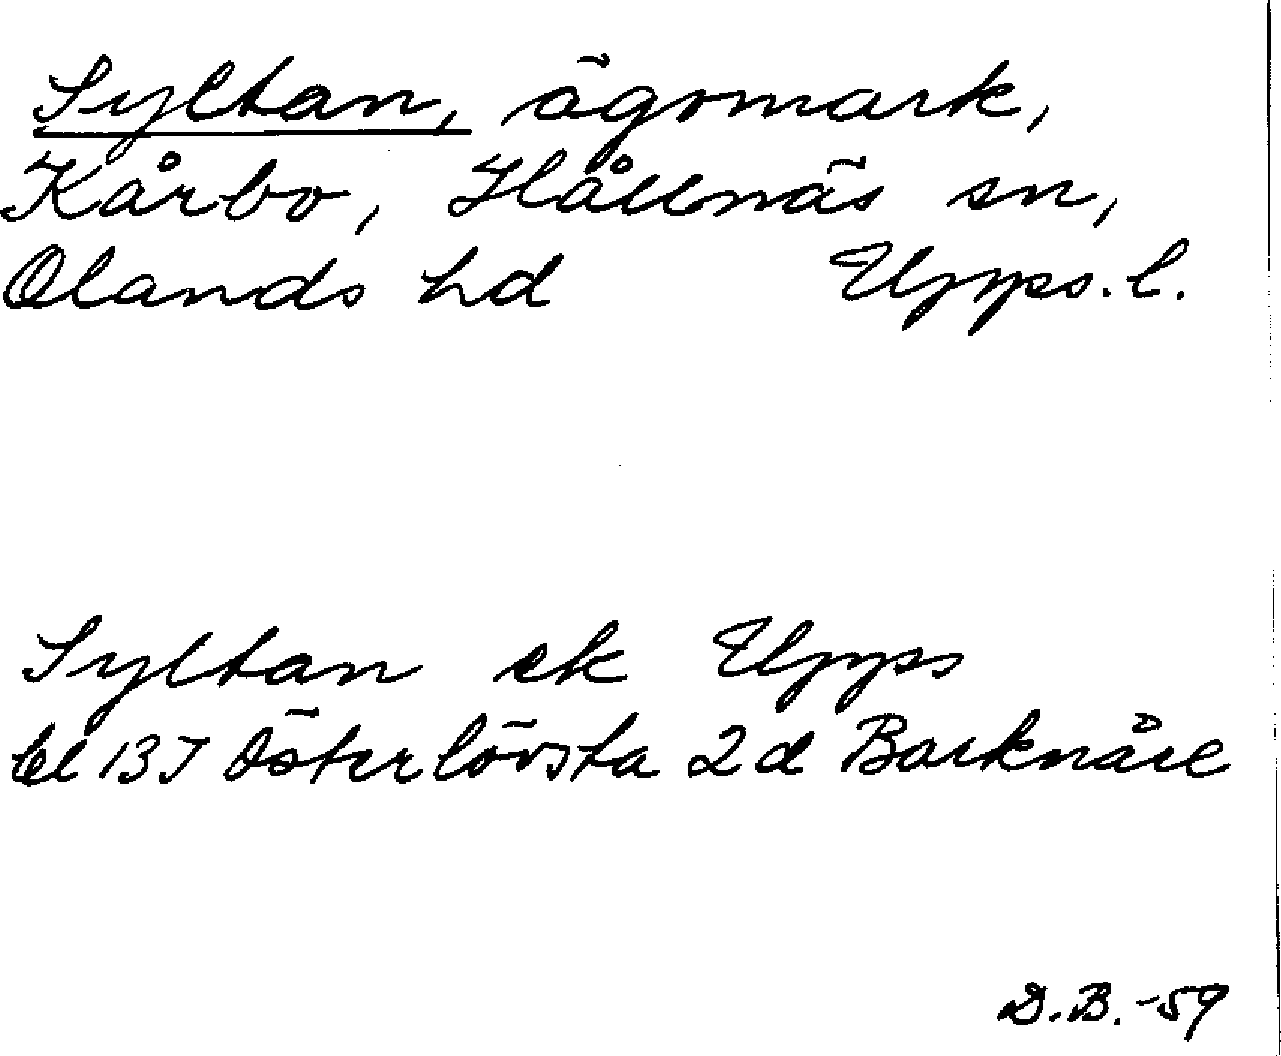 Syltan, ägomark,
Kårbo, Hållnäs sn,
Olands hd Upps. l.
Syltan ek Upps
bl 13I Österlövsta 2d Barknåre
D.B.-59